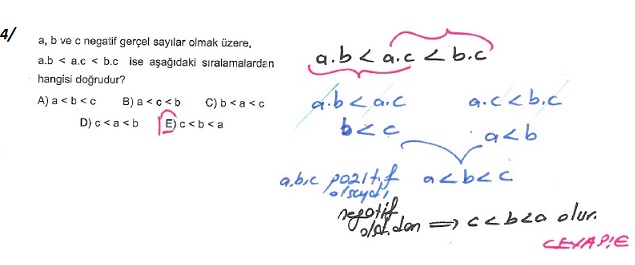 4/
a, b ve c negatif gerçel sayılar olmak üzere,
a.b < a.c < b.c ise aşağıdaki sıralamalardan
hangisi doğrudur?
A) a < b < c B) a < c < b C) b < a < c
D) c < a < b E) c < b < a
a.b < a.c < b.c
a.b < a.c a.c < b.c
b < c a < b
a,b,c pozitif a < b < c
olsaydı
negatif
old.dan ⟹ c < b < a olur.
CEVAP:E